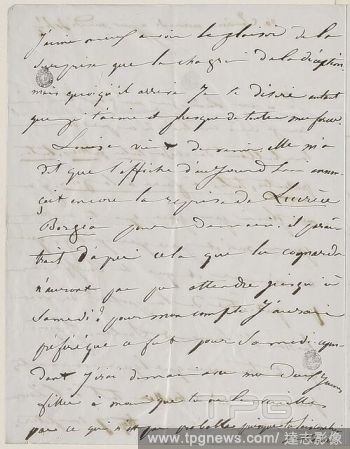 J'aime mieux avoir le plaisir de la
surprise que le chagrin de la déception
mais quoiqu'il arrive je te désire autant
que je t'aime et presque de toutes mes forces.
Louise vient de venir elle m'a
dit que l'affiche d'aujourd'hui annon-
çait encore la reprise de Lucrèce
Borgia pour demain. Il paraî-
trait d'après cela que les cognards
n'auront pas pu attendre jusqu'à
Samedi. Pour mon compte j'aurais
préféré que ce fût pour Samedi cepen-
dant j'irai demain avec mes deux
filles à moins que tu ne le veuilles
pas ce qui n'est pas probable puisque
TPG
www.tpgnews.com / 達志影像